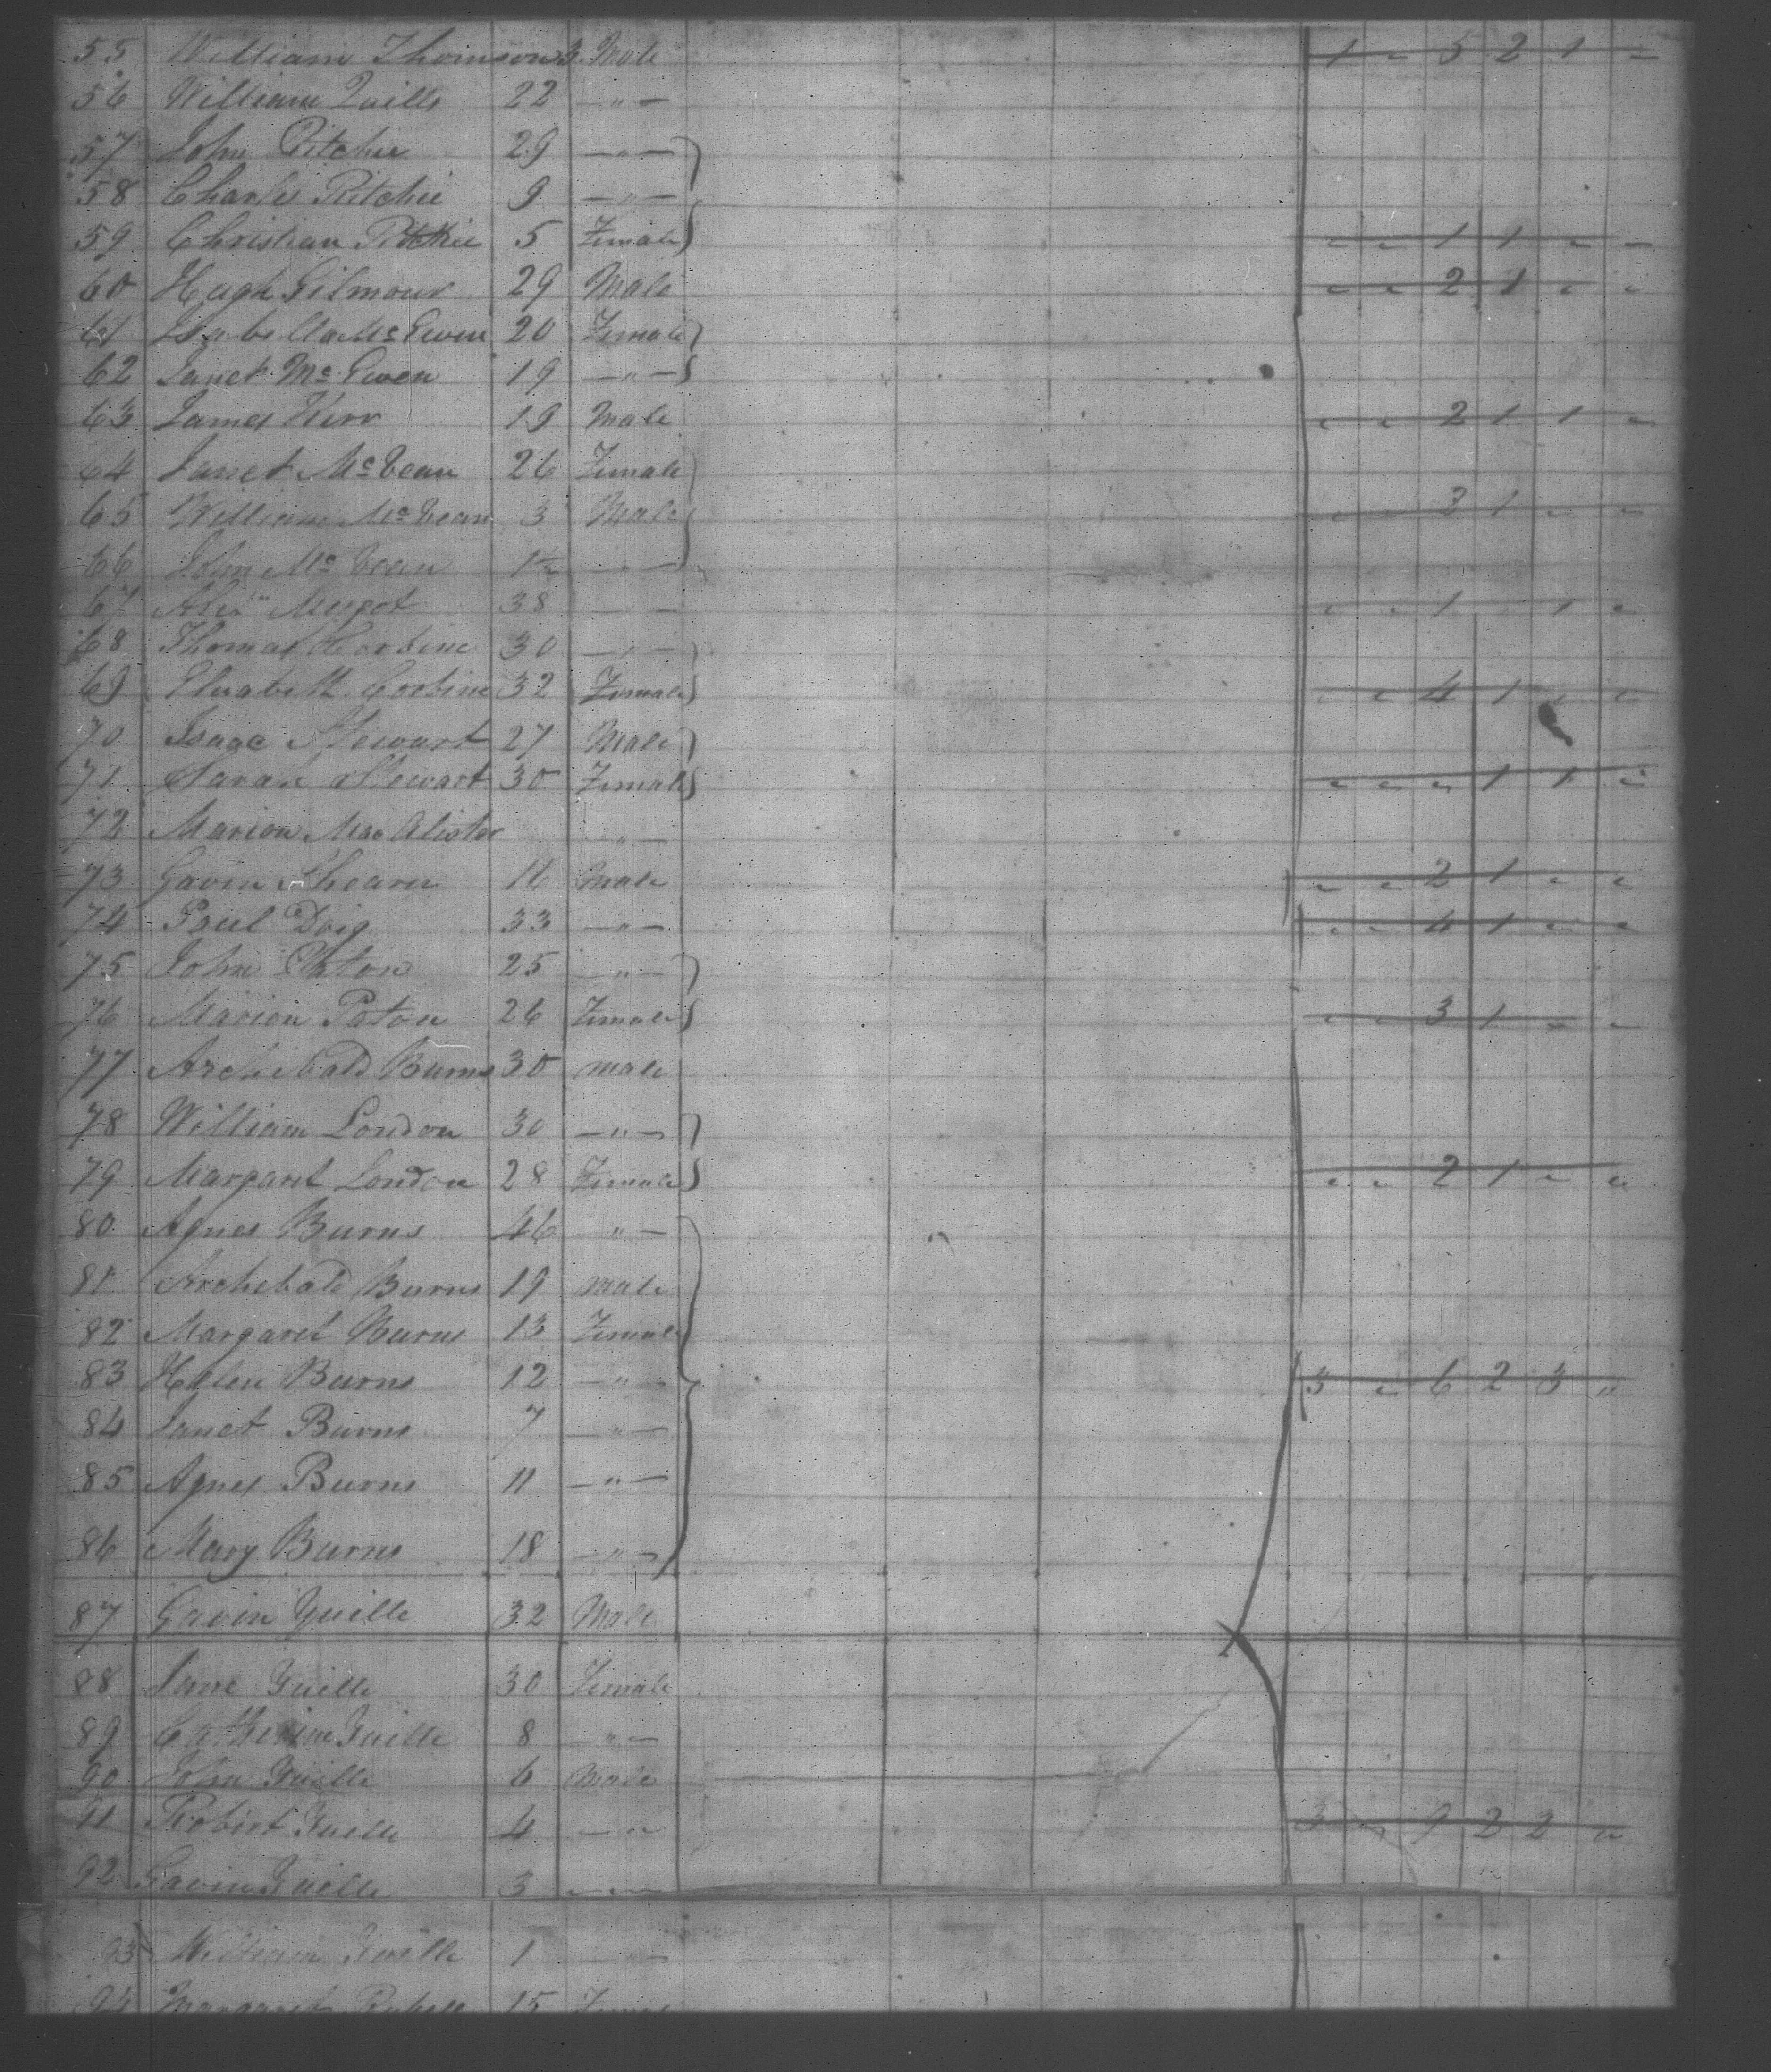 55 William Thomson 3 Male 1 " 5 2 1 "
56 William Quille 22 — " —
57 John Ritchie 29 — " —
58 Charles Ritchie 9 — " —
59 Christian Ritchie 5 Female " " 1 1 " "
60 Hugh Gilmour 29 Male " " 2 1 " "
61 Isabella McEwen 20 Female
62 Janet McEwen 19 — " —
63 James Kerr 19 Male " " 2 1 1 "
64 Janet McBean 26 Female
65 William McBean 3 Male " " 3 1 " "
66 John McBean — " —
67 38 — " — " " 1 " 1 "
68 Thomas 30 — " —
69 Elizabeth Corbine 32 Female " " 4 1 " "
70 Isaac Stewart 27 Male
71 Sarah Stewart 30 Female " " " 1 1 "
72 Marion MacAlister — " —
73 Gavin Shearer 16 Male " " 2 1 " "
74 Paul Doig 33 — " — " " 4 1 " "
75 John Paton 25 — " —
76 Marion Paton 26 Female " " 3 1 " "
77 Archibald Burns 30 male
78 William London 30 — " —
79 Margaret London 28 Female " " 2 1 " "
80 Agnes Burns 46 " —
81 Archibald Burns 19 male
82 Margaret Burns 13 Female
83 Helen Burns 12 — " — 3 " 6 2 3 "
84 Janet Burns 7 — " —
85 Agnes Burns 11 — " —
86 Mary Burns 18 — " —
87 Gavin Yuille 32 Male
88 Jane Yuille 30 Female
89 Catherine Yuille 8 — " —
90 John Yuille 6 Male
91 Robert Yuille 4 — " — 3 " 9 2 2 "
92 Gavin Yuille 3 — " —
93 William Yuille 1 — " —
94 Margaret 15 Female